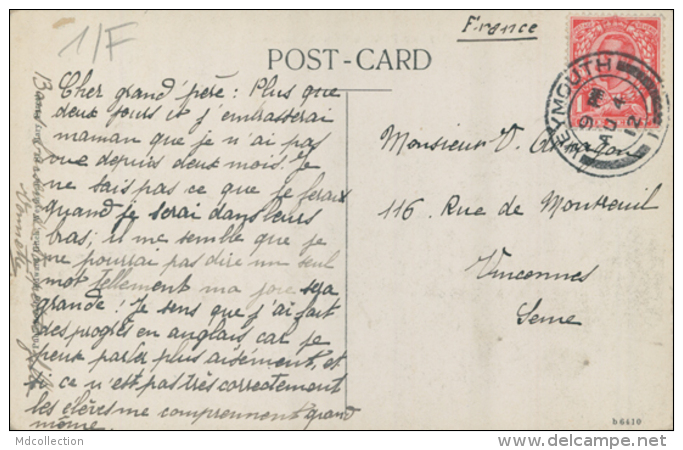 1/F
France
POST-CARD
WEYMOUTH
9 PM
AU 4
12
Cher grand'père : Plus que
deux jours et j'embrasserai
maman que je n'ai pas
vue depuis deux mois. Je
ne sais pas ce que je ferai
quand je serai dans leurs
bras; il me semble que je
ne pourrai pas dire un seul
mot tellement ma joie sera
grande! Je sens que j'ai fait
des progrès en anglais car je
peux parler plus aisément, et
si ce n'est pas très correctement
les élèves me comprennent grand
même.
Monsieur V.
116 Rue de Montreuil
Vincennes
Seine
b6410
Mdcollection
www.delcampe.net